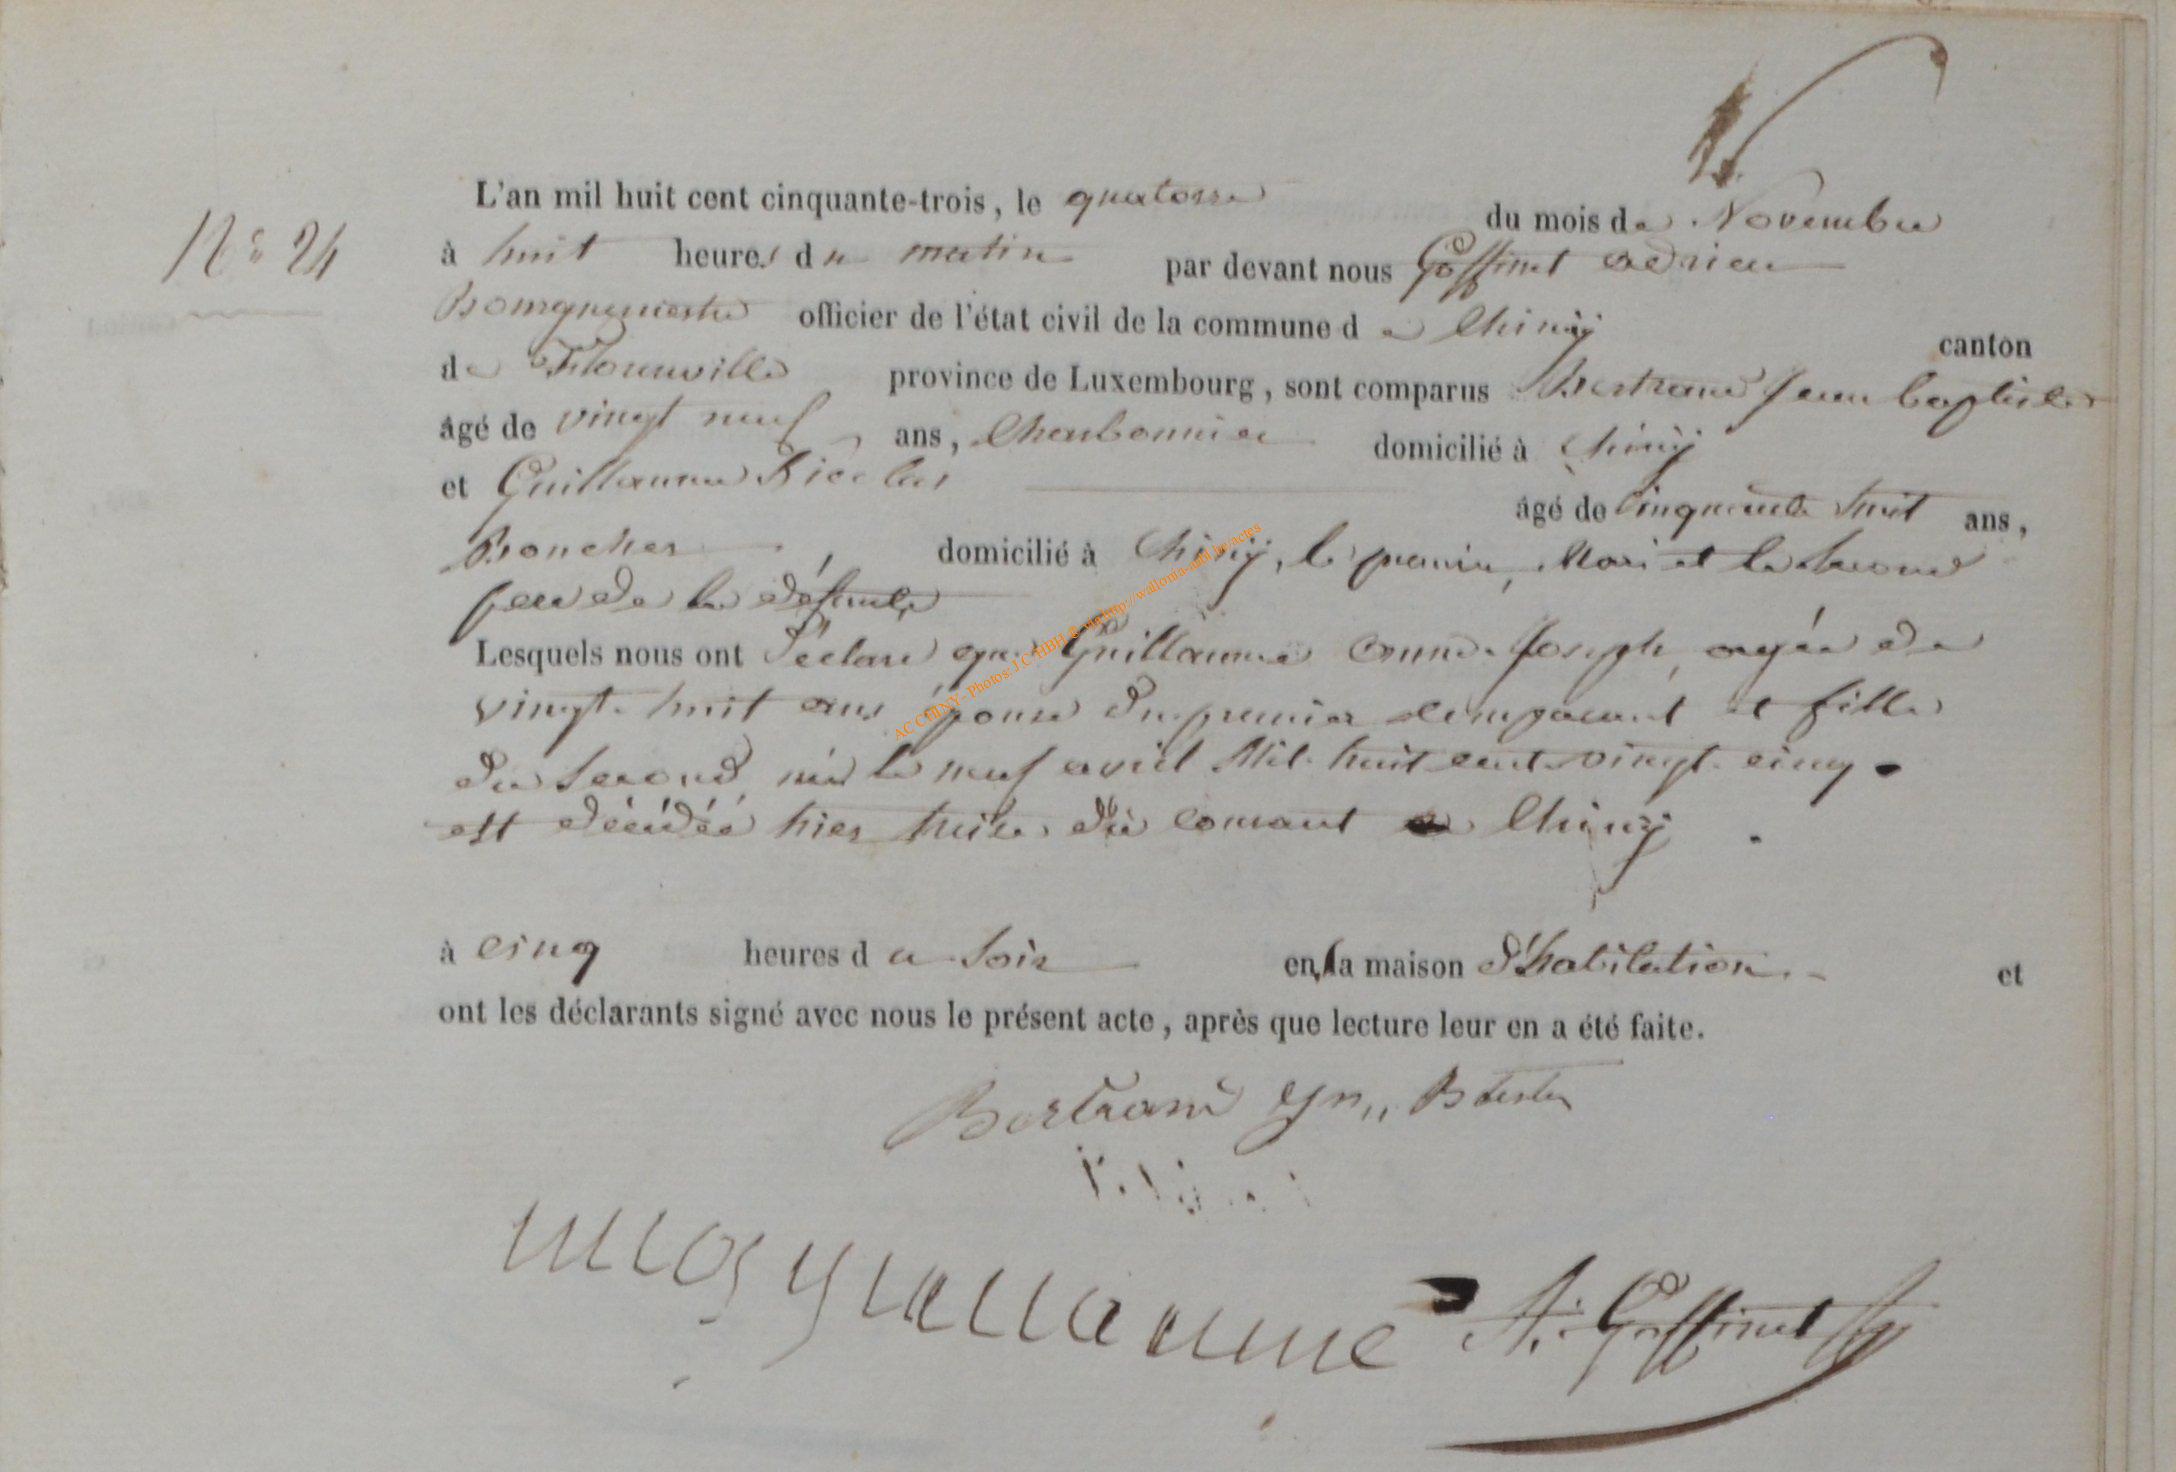 N° 24
L'an mil huit cent cinquante-trois, le quatorze du mois de Novembre
à huit heures du matin par devant nous Goffinet adrien
Bourguemestre officier de l'état civil de la commune de Chiny canton
de Florenville province de Luxembourg, sont comparus Bertrand Jean baptiste
âgé de vingt neuf ans, Charbonnier domicilié à Chiny
et Guillaume Nicolas âgé de Cinquante huit ans,
domicilié à Chiny, le premier, Mari et le Second
pere de la défunte
Lesquels nous ont déclaré que Guillaume anne Joseph, agée de
vingt huit ans épouse du premier comparant et fille
du Second, née le neuf avril Mil huit cent vingt cinq
est décédée hier treize du courant a Chiny.
à cinq heures du Soir en la maison d'habitation et
ont les déclarants signé avec nous le présent acte, après que lecture leur en a été faite.
Bertrand
A. Goffinet
AC CHINY- Photos: J.C HBH © via http://wallonia-asbl.be/actes